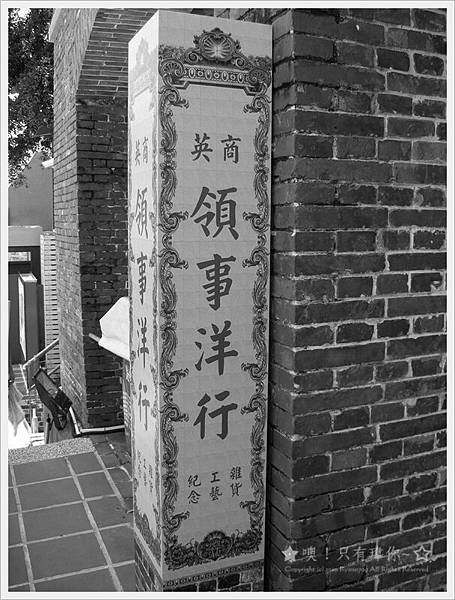 英商
領事洋行
雜貨
工藝
紀念
英商
領事洋行
★噢！只有琪你~☆